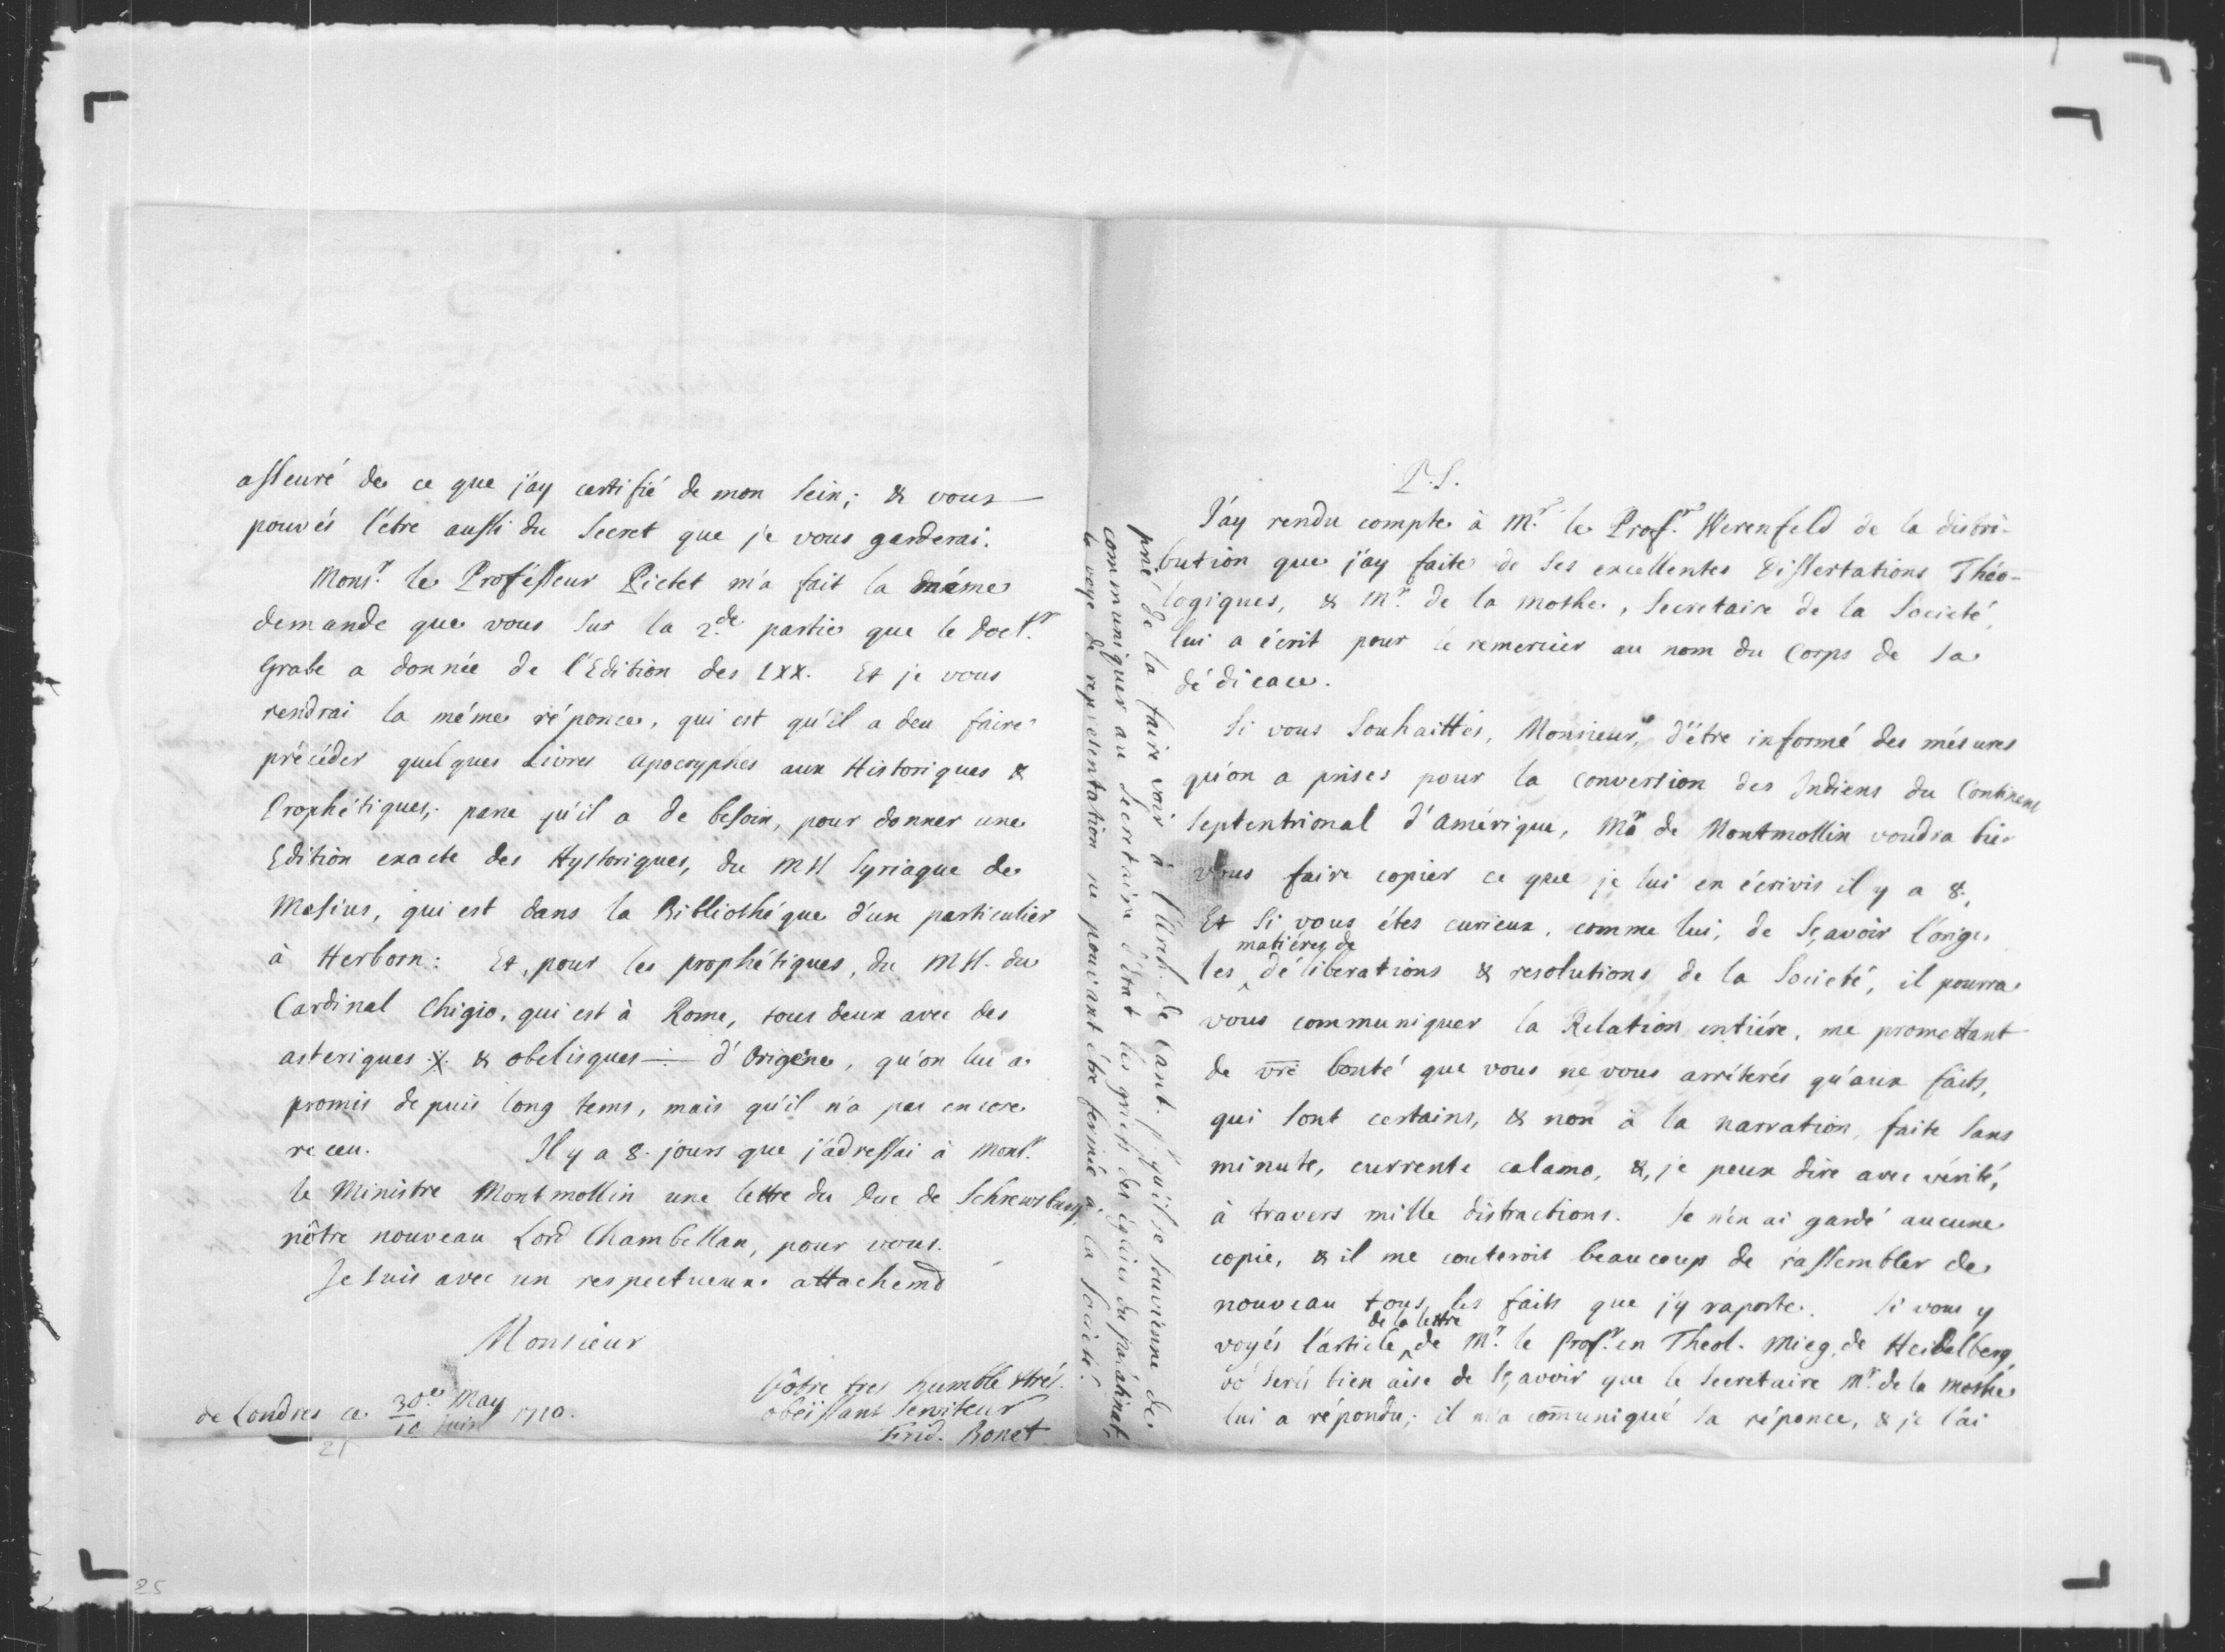 asseuré de ce que j'ay certifié de mon sein; & vous
pouvés l'être aussi du Secret que je vous garderai.
Monsr. le Proféſſeur Pictet m'a fait la méme
demande que vous sur la 2.de partie que le Doct.r
Grabe a donnée de l'Edition des LXX. Et je vous
rendrai la méme réponce, qui est qu'il a deu faire
précéder quelques Livres Apocryphes aux Historiques &
Prophétiques; parce qu'il a de besoin, pour donner une
Edition exacte des Hystoriques, du MSS Syriaque de
Masius, qui est dans la Bibliothéque d'un particulier
à Herborn: Et, pour les prophétiques, du MSS. du
Cardinal Chigio, qui est à Rome, tous deux avec des
asteriques ※ & obelisques ÷ d'Origéne, qu'on lui a
promis depuis long tems, mais qu'il n'a pas encore
receu. Il y a 8. jours que j'adressai à Monsr.
le Ministre Montmollin une lettre du Duc de Schrewsbury,
nôtre nouveau Lord Chambellan, pour vous.
Je suis avec un respectueux attachemt
Monsieur
Vôtre tres humble & trés
obéissant serviteur
Frid. Bonet
de Londres ce 30e May / 10 Juin 1710.
25
25
P.S.
J'ay rendu compte à Mr. le Profr. Werenfeld de la distri-
bution que j'ay faite de ses excellentes Dissertations Théo-
logiques, & Mr. de la Mothe, Secretaire de la Societé,
lui a écrit pour le remercier au nom du Corps de sa
dédicace.
Si vous souhaittés, Monsieur, d'être informé des mésures
qu'on a prises pour la conversion des Indiens du Continent
Septentrional d'Amérique, Mr de Montmollin voudra bien
vous faire copier ce que je lui en écrivis il y a 8.
Et si vous étes curieux, comme lui, de sçavoir l'orige
matiéres de
les délibérations & resolutions de la Societé, il pourra
vous communiquer la Relation entiére, me promettant
de vre bonté que vous ne vous arrêterés qu'aux faits,
qui sont certains, & non à la narration, faite sans
minute, currente calamo, &, je peux dire avec vérité,
à travers mille distractions. Je n'en ai gardé aucune
copie, & il me couteroit beaucoup de rassembler de
nouveau tous les faits que j'y raporte. Si vous y
de la lettre
voyés l'article de Mr. le Profr. en Theol. Mieg, de Heidelberg,
vo' serés bien aise de sçavoir que le Secretaire Mr. de la Mothe
lui a répondu; il m'a comuniqué sa réponce, & je l'ai
prié de la faire voir à l'Arch. de Cant. pr qu'il se souvienne de
communiquer au Secretaire d'Etat les griefs des églises du Palatinat,
la voye de representation ne pouvant être fermée à la Societé.